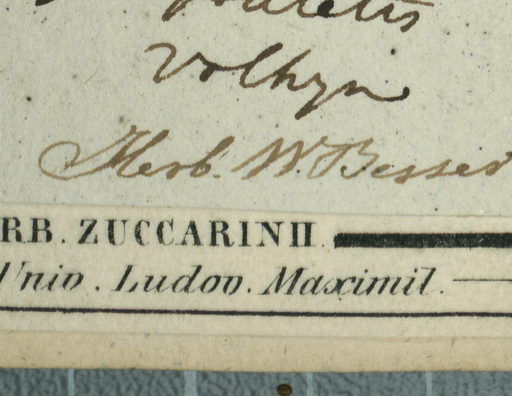 Volhyn
Herb. W. Besser
RB. ZUCCARINII.
Univ. Ludov. Maximil.